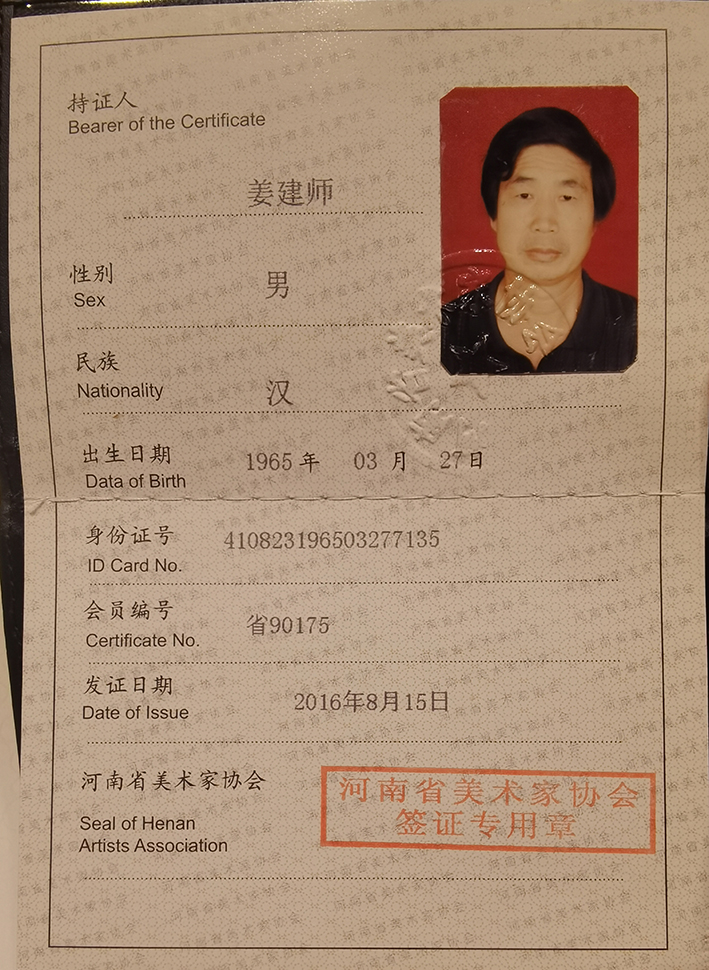 持证人
Bearer of the Certificate
姜建师
性别
Sex
男
民族
Nationality
汉
出生日期
Data of Birth
1965年 03月 27日
身份证号
ID Card No.
410823196503277135
会员编号
Certificate No.
省90175
发证日期
Date of Issue
2016年8月15日
河南省美术家协会
Seal of Henan
Artists Association
河南省美术家协会
签证专用章